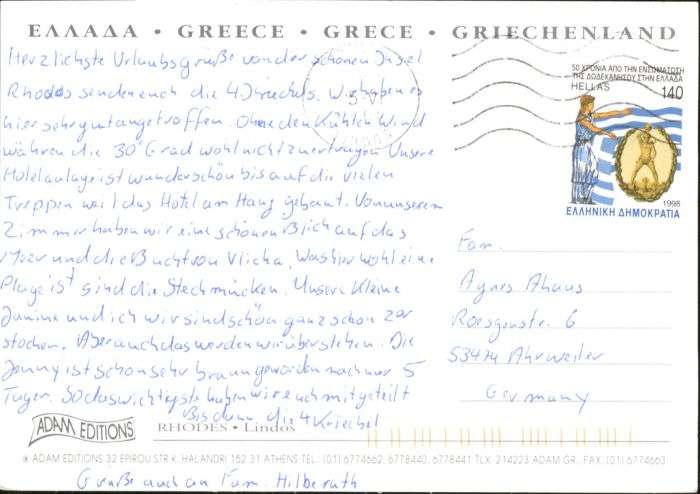 ΕΛΛΑΔΑ • GREECE • GRECE • GRIECHENLAND
Herzlichste Urlaubsgrüße von der schönen Insel
Rhodos senden euch die 4 Kriechels. Wir haben es
hier sehr gut angetroffen. Ohne den kühlen Wind
währen die 30° Grad wohl nicht zu ertragen. Unsere
Hotelanlage ist wunderschön bis auf die vielen
Treppen weil das Hotel am Hang gebaut. Von unserem
Zimmer haben wir eine schönen Blich auf das
Meer und die Bucht von Vlicha. Was hier wohl eine
Plage ist sind die Stechmücken. Unsere kleine
Janine und ich wir sind schön ganz schön zer
stochen. Aber auch das werden wir überstehen. Die
Jenny ist schon sehr braun geworden nach nur 5
Tagen. So das wichtigste haben wir euch mitgeteilt
Bis dann die 4 Kriechel
50 ΧΡΟΝΙΑ ΑΠΟ ΤΗΝ ΕΝΣΩΜΑΤΩΣΗ
ΤΗΣ ΔΩΔΕΚΑΝΗΣΟΥ ΣΤΗΝ ΕΛΛΑΔΑ
HELLAS 140
1998
ΕΛΛΗΝΙΚΗ ΔΗΜΟΚΡΑΤΙΑ
Fam.
Agnes Ahaus
Roesgenstr. 6
53474 Ahrweiler
Germany
ADAM EDITIONS RHODES • Lindos
ADAM EDITIONS 32 EPIROU STR K. HALANDRI 152 31 ATHENS TEL.: (01) 6774662, 6778440, 6778441 TLX 214223 ADAM GR., FAX. (01) 6774663
Grüße auch an Fam. Hilberath